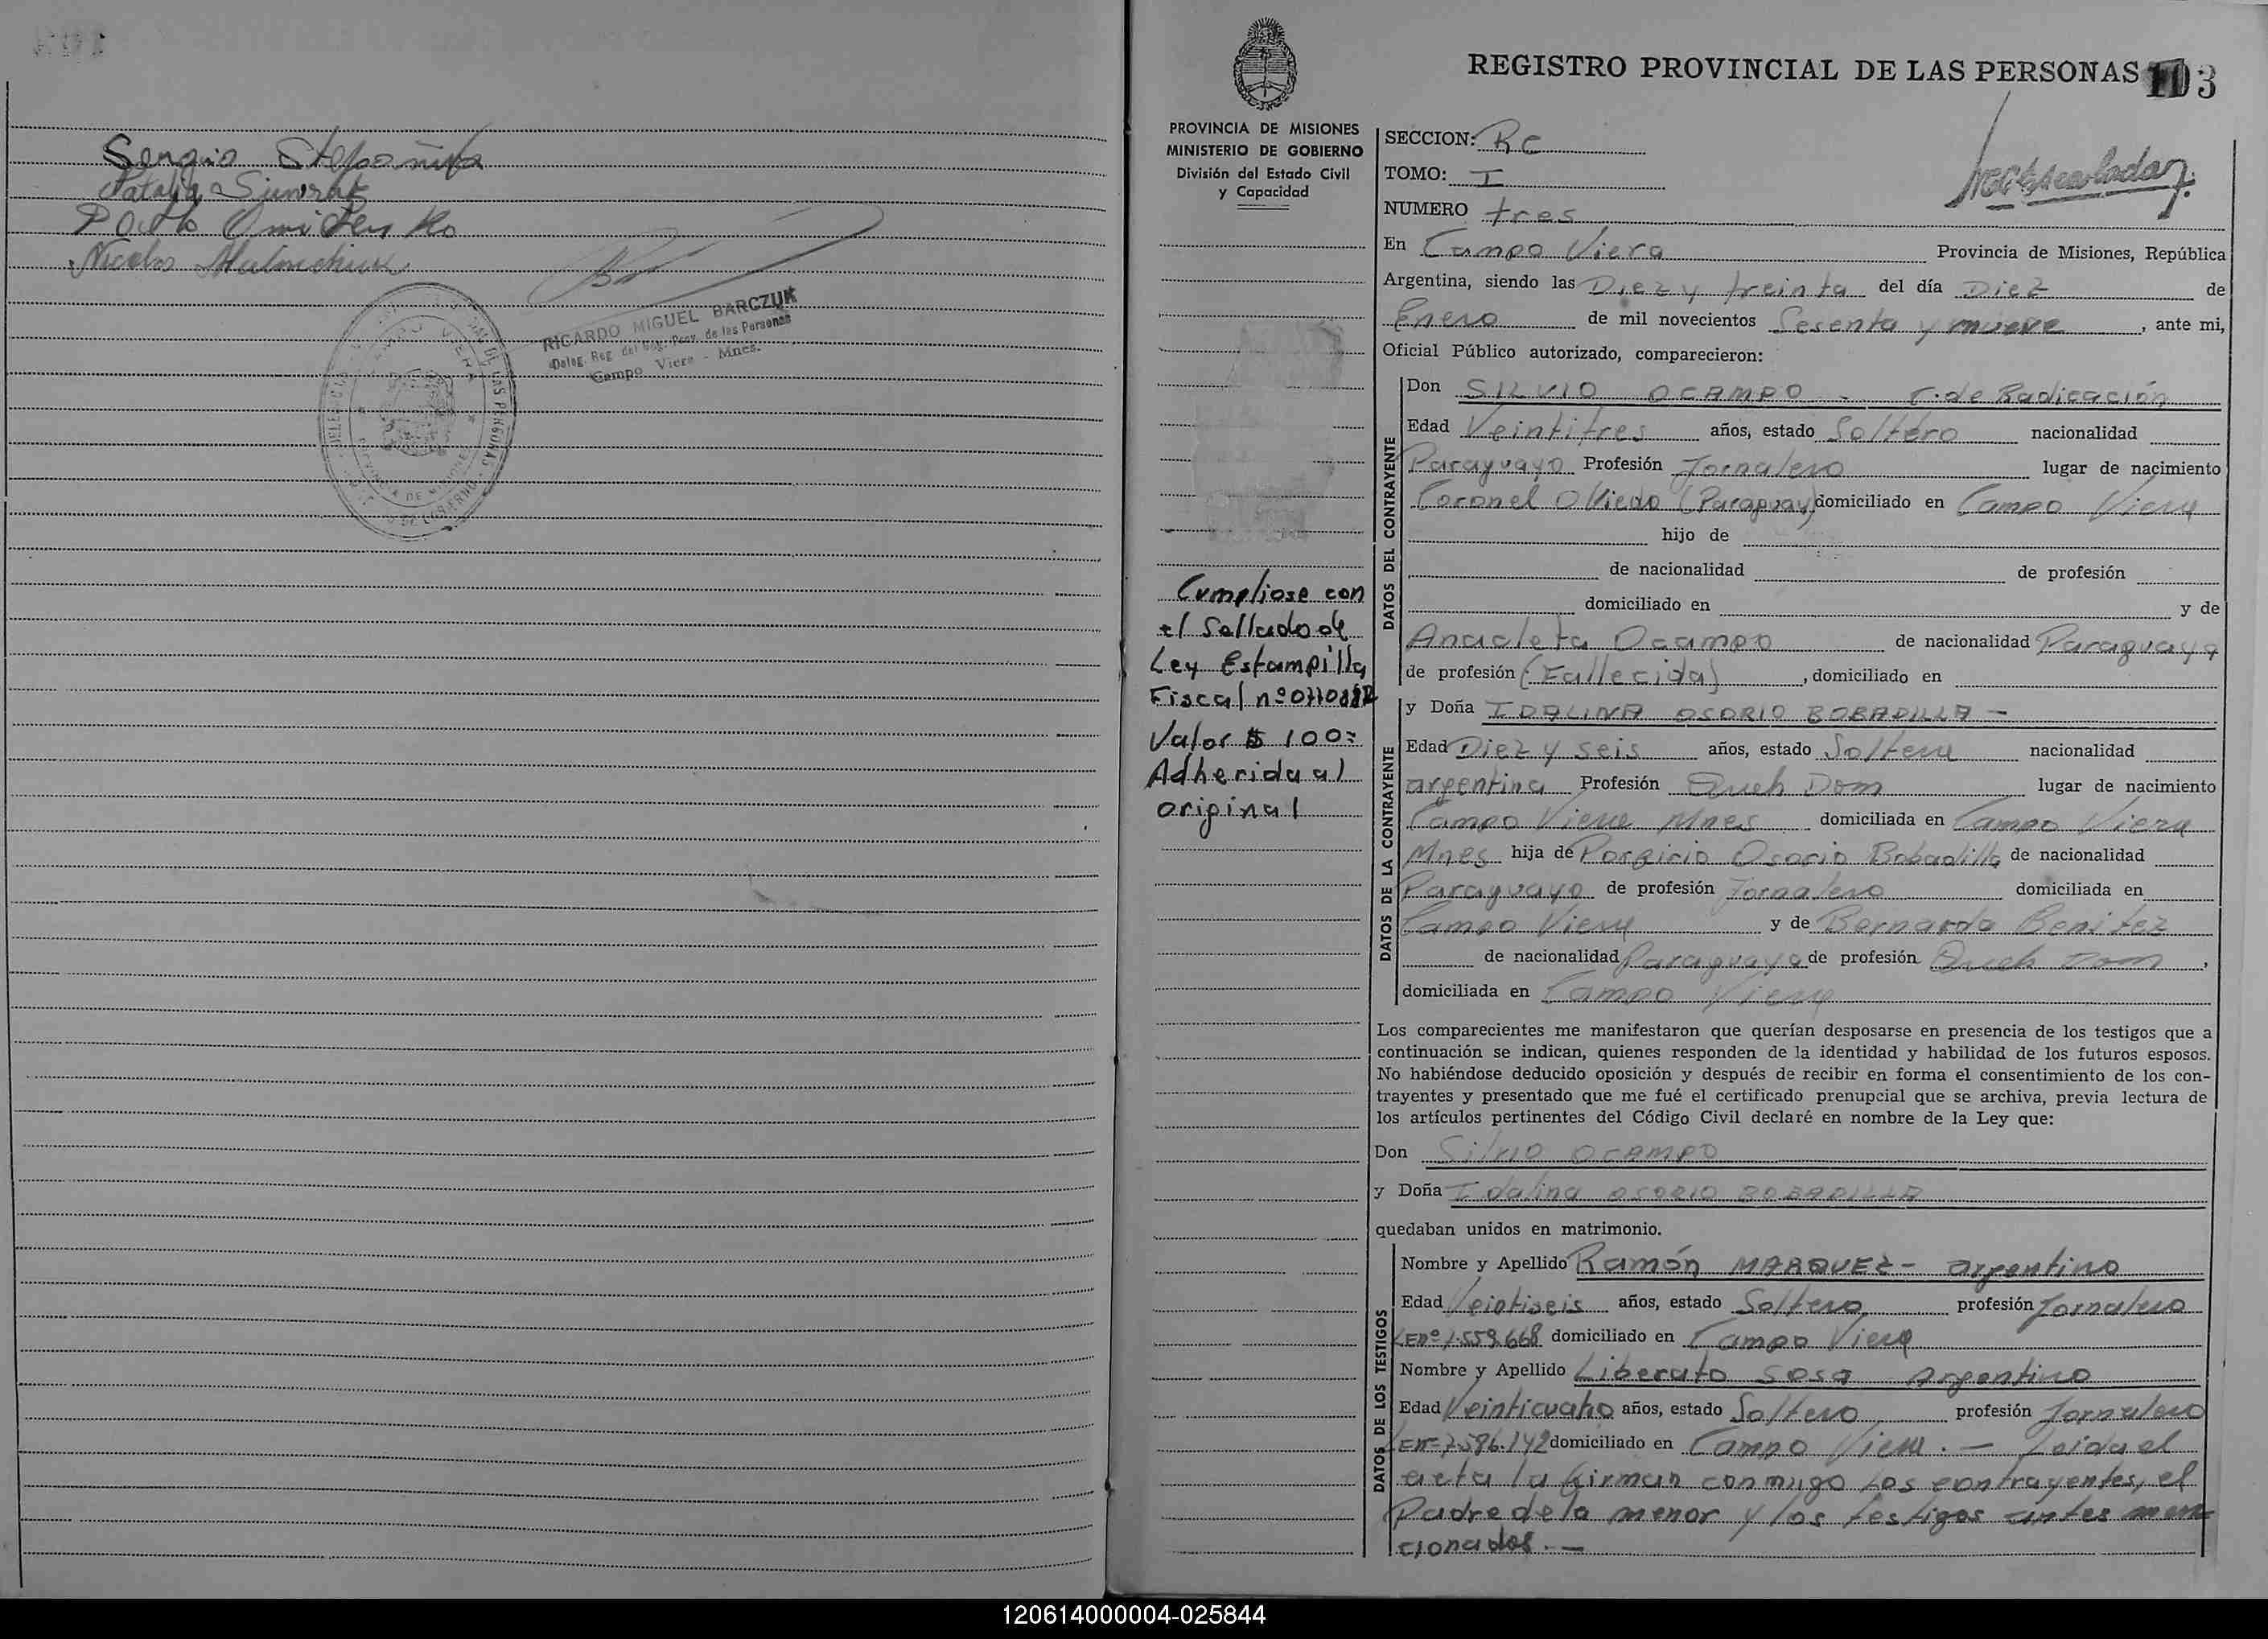 Sergio
Natalia
Pablo
Nicolas
RICARDO MIGUEL BARCZUK
Deleg. Reg. del Reg. Prov. de las Personas
Campo Viera - Mnes.
REGISTRO PROVINCIAL DE LAS PERSONAS
3
PROVINCIA DE MISIONES
MINISTERIO DE GOBIERNO
División del Estado Civil
y Capacidad
SECCION: RC
TOMO: I
NUMERO tres
En Campo Viera Provincia de Misiones, República
Argentina, siendo las Diez y treinta del día Diez de
Enero de mil novecientos Sesenta y nueve, ante mi,
Oficial Público autorizado, comparecieron:
DATOS DEL CONTRAYENTE
Don SILVIO OCAMPO - C. de Radicación
Edad Veintitres años, estado Soltero nacionalidad
Paraguayo Profesión Jornalero lugar de nacimiento
Coronel Oviedo (Paraguay) domiciliado en Campo Viera
hijo de
de nacionalidad de profesión
domiciliado en y de
Anacleta Ocampo de nacionalidad Paraguaya
de profesión (Fallecida), domiciliado en
Cumpliose con
el Sellado de
Ley Estampilla
Fiscal nº
Valor $ 100=
Adherida al
original
DATOS DE LA CONTRAYENTE
y Doña IDALINA OSORIO BOBADILLA -
Edad Diez y seis años, estado Soltera nacionalidad
argentina Profesión Queh Dom lugar de nacimiento
Campo Viera Mnes domiciliada en Campo Viera
Mnes hija de Porficio Osorio Bobadilla de nacionalidad
Paraguayo de profesión Jornalero domiciliada en
Campo Viera y de Bernarda Benitez
de nacionalidad Paraguaya de profesión Queh Dom,
domiciliada en Campo Viera
Los comparecientes me manifestaron que querían desposarse en presencia de los testigos que a
continuación se indican, quienes responden de la identidad y habilidad de los futuros esposos.
No habiéndose deducido oposición y después de recibir en forma el consentimiento de los con-
trayentes y presentado que me fué el certificado prenupcial que se archiva, previa lectura de
los artículos pertinentes del Código Civil declaré en nombre de la Ley que:
Don Silvio OCAMPO
y Doña Idalina OSORIO BOBADILLA
quedaban unidos en matrimonio.
DATOS DE LOS TESTIGOS
Nombre y Apellido Ramón MARQUEZ - argentino
Edad Veintiseis años, estado Soltero profesión Jornalero
LEnº 7.559.668 domiciliado en Campo Viera
Nombre y Apellido Liberato Sosa Argentino
Edad Veinticuatro años, estado Soltero profesión Jornalero
LEnº 7.596.142 domiciliado en Campo Viera. - Leida el
acta la firman conmigo los contrayentes, el
Padre de la menor y los testigos antes men
cionados. -
120614000004-025844